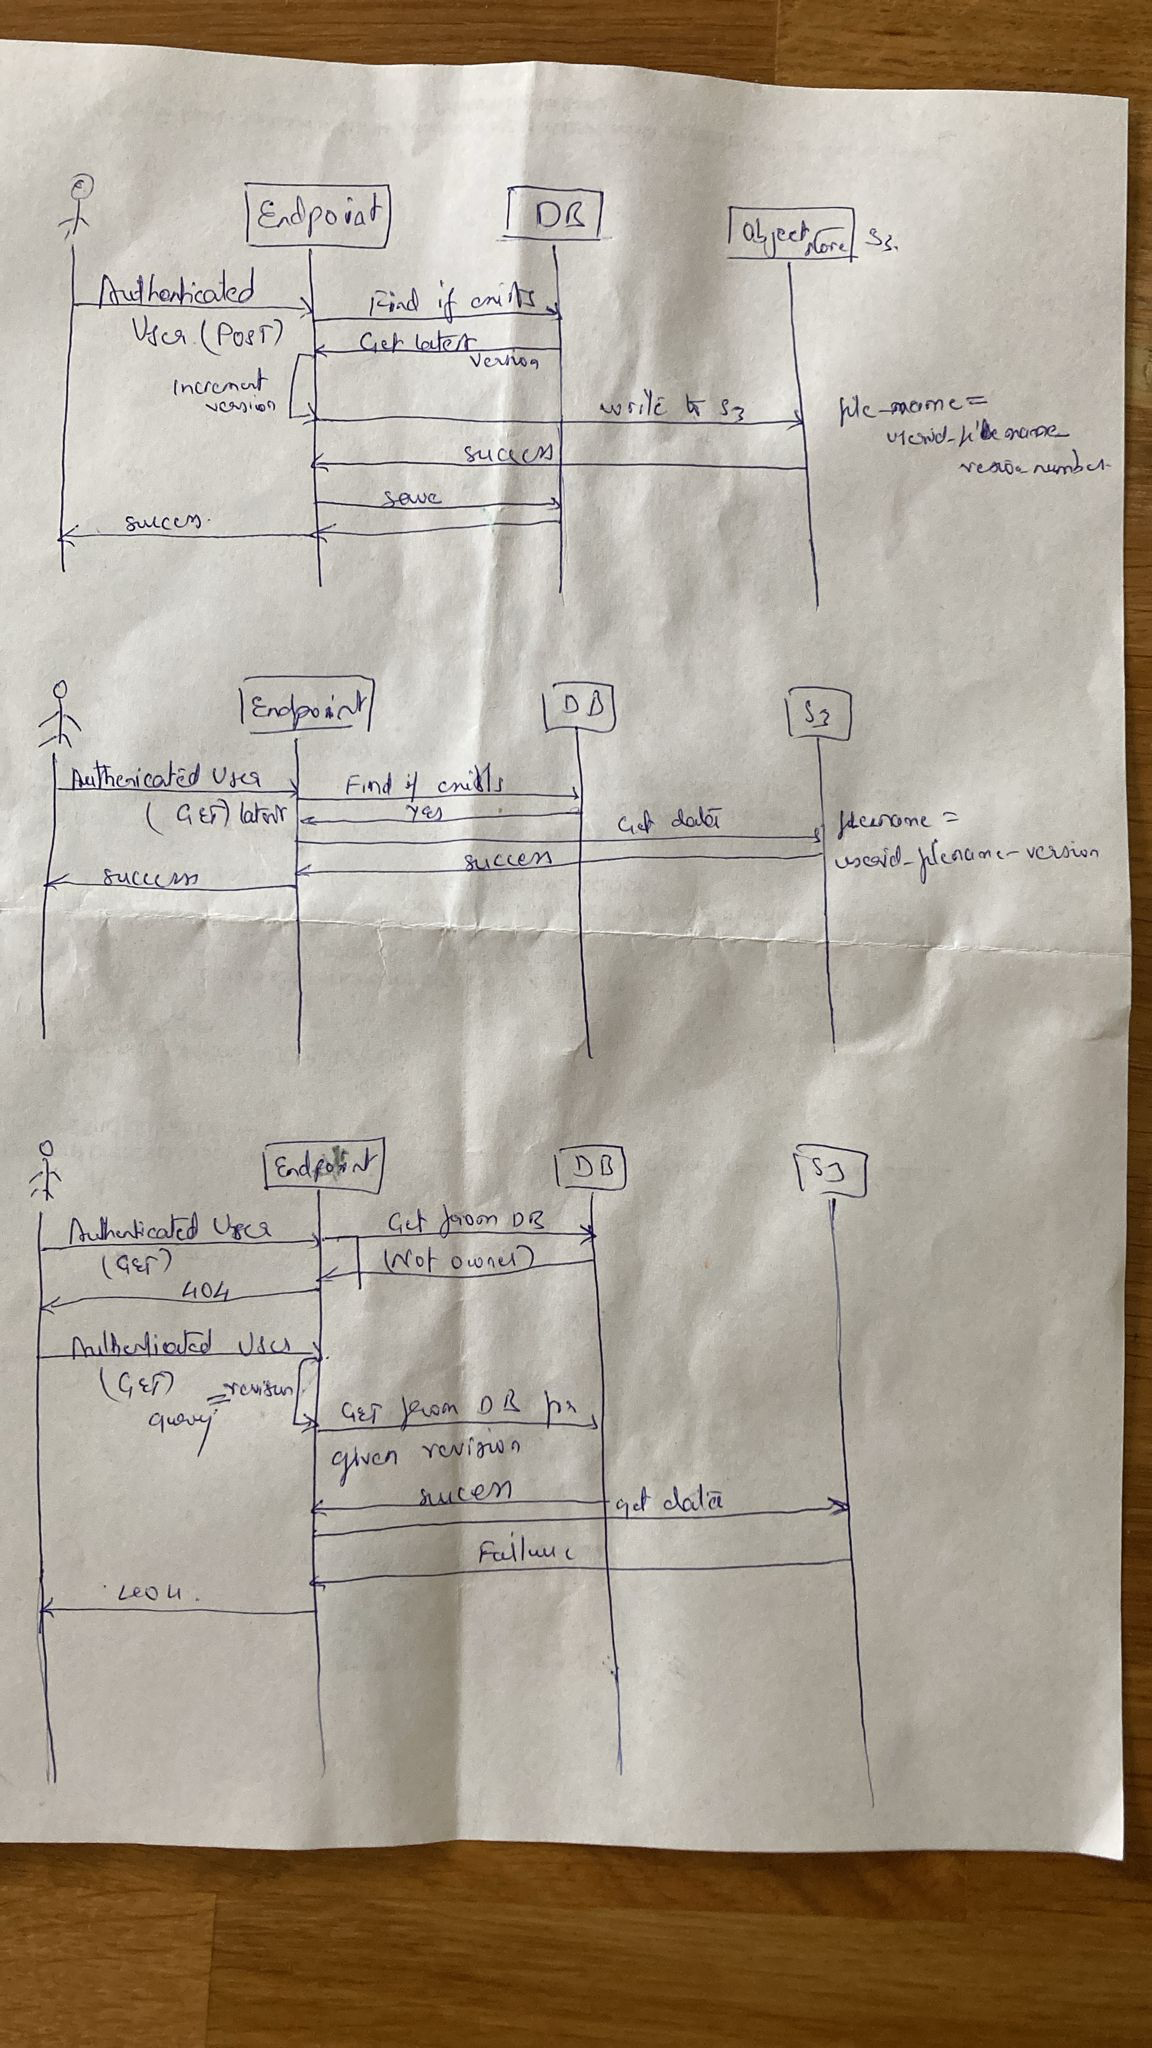 Endpoint
DB
Object
store
S3.
Authenticated
User (POST)
Find if exists
Get latest
version
Increment
version
write to S3
file-name =
userid-filename
version number
success
save
success.
Endpoint
DB
S3
Authenicated User
(GET) latest
Find if exists
Yes
Get data
filename =
userid-filename-version
success
success
Endpoint
DB
S3
Authenticated User
(GET)
Get from DB
(Not owner)
404
Authenticated User
(GET)
query = revision
GET from DB for
given revision
sucess
get data
Failure
404.